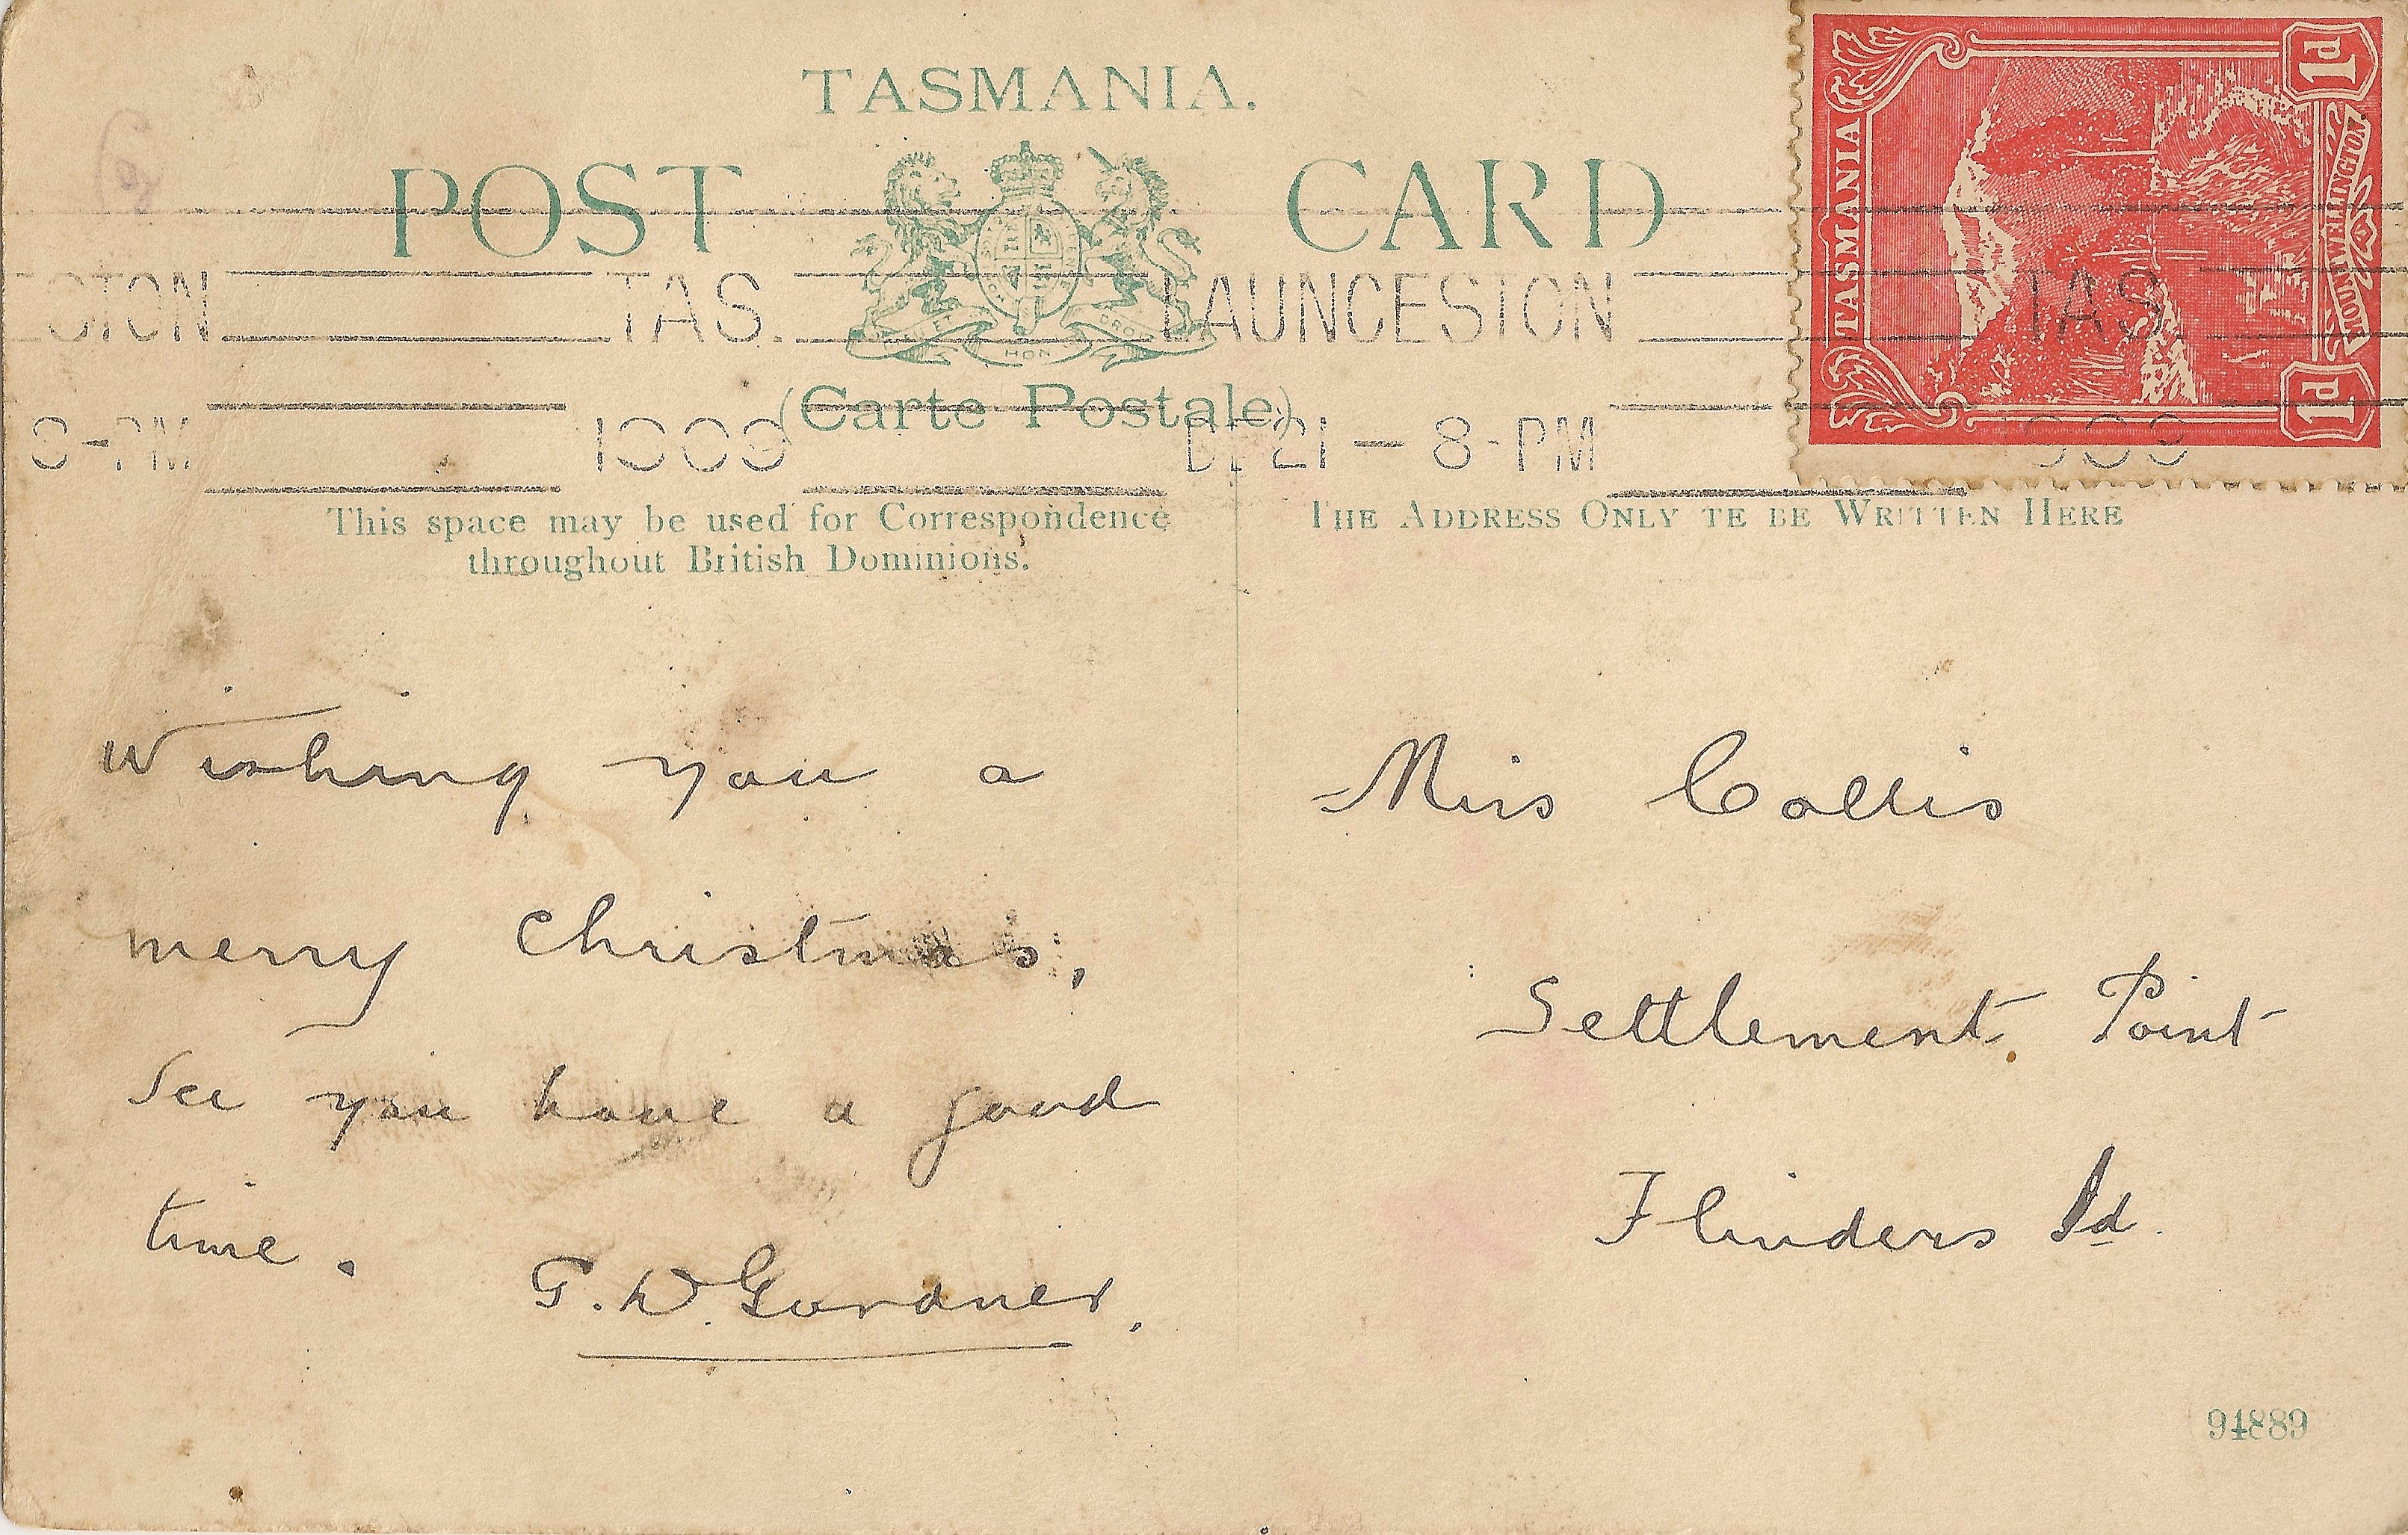 TASMANIA.
POST CARD
(Carte Postale)
TAS. LAUNCESTON TAS.
8-PM 1909 DE 21 — 8-PM 1909
TASMANIA
1d 1d
MOUNT WELLINGTON
HON
This space may be used for Correspondence
throughout British Dominions.
THE ADDRESS ONLY TE BE WRITTEN HERE
Wishing you a
merry Christmas,
See you have a good
time.
G. W. Gardner,
Miss Collis
Settlement Point
Flinders Id.
94889